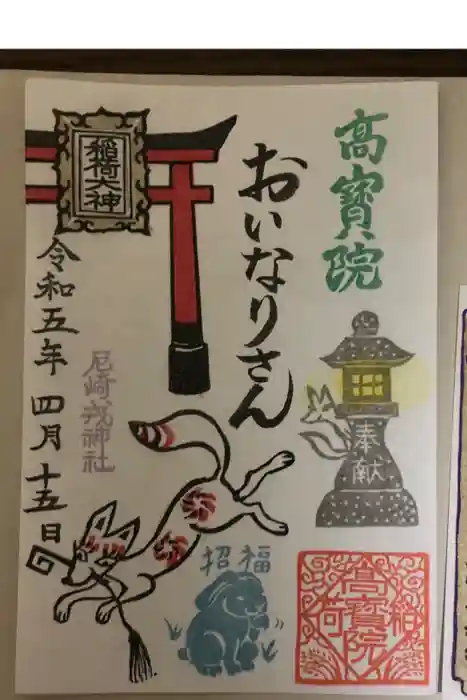 高寳院
おいなりさん
稲荷大神
令和五年四月十五日
尼崎戎神社
奉献
招福
稲荷
高寳院